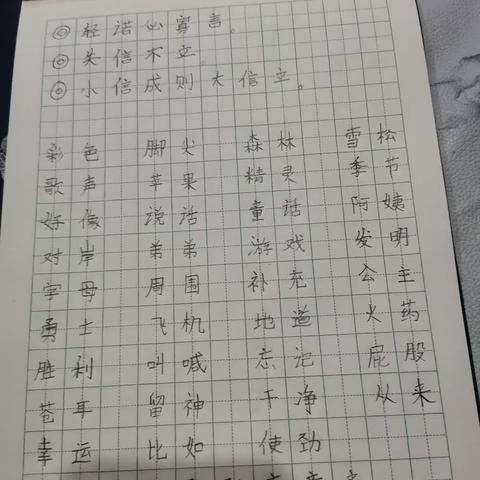 ◎轻诺必寡言。
◎失信不立。
◎小信成则大信立。
彩色 脚尖 森林 雪松
歌声 苹果 精灵 季节
好像 说话 童话 阿姨
对岸 弟弟 游戏 发明
字母 周围 补充 公主
勇士 飞机 地道 火药
胜利 叫喊 忘记 屁股
苍耳 留神 干净 从来
幸运 比如 使劲